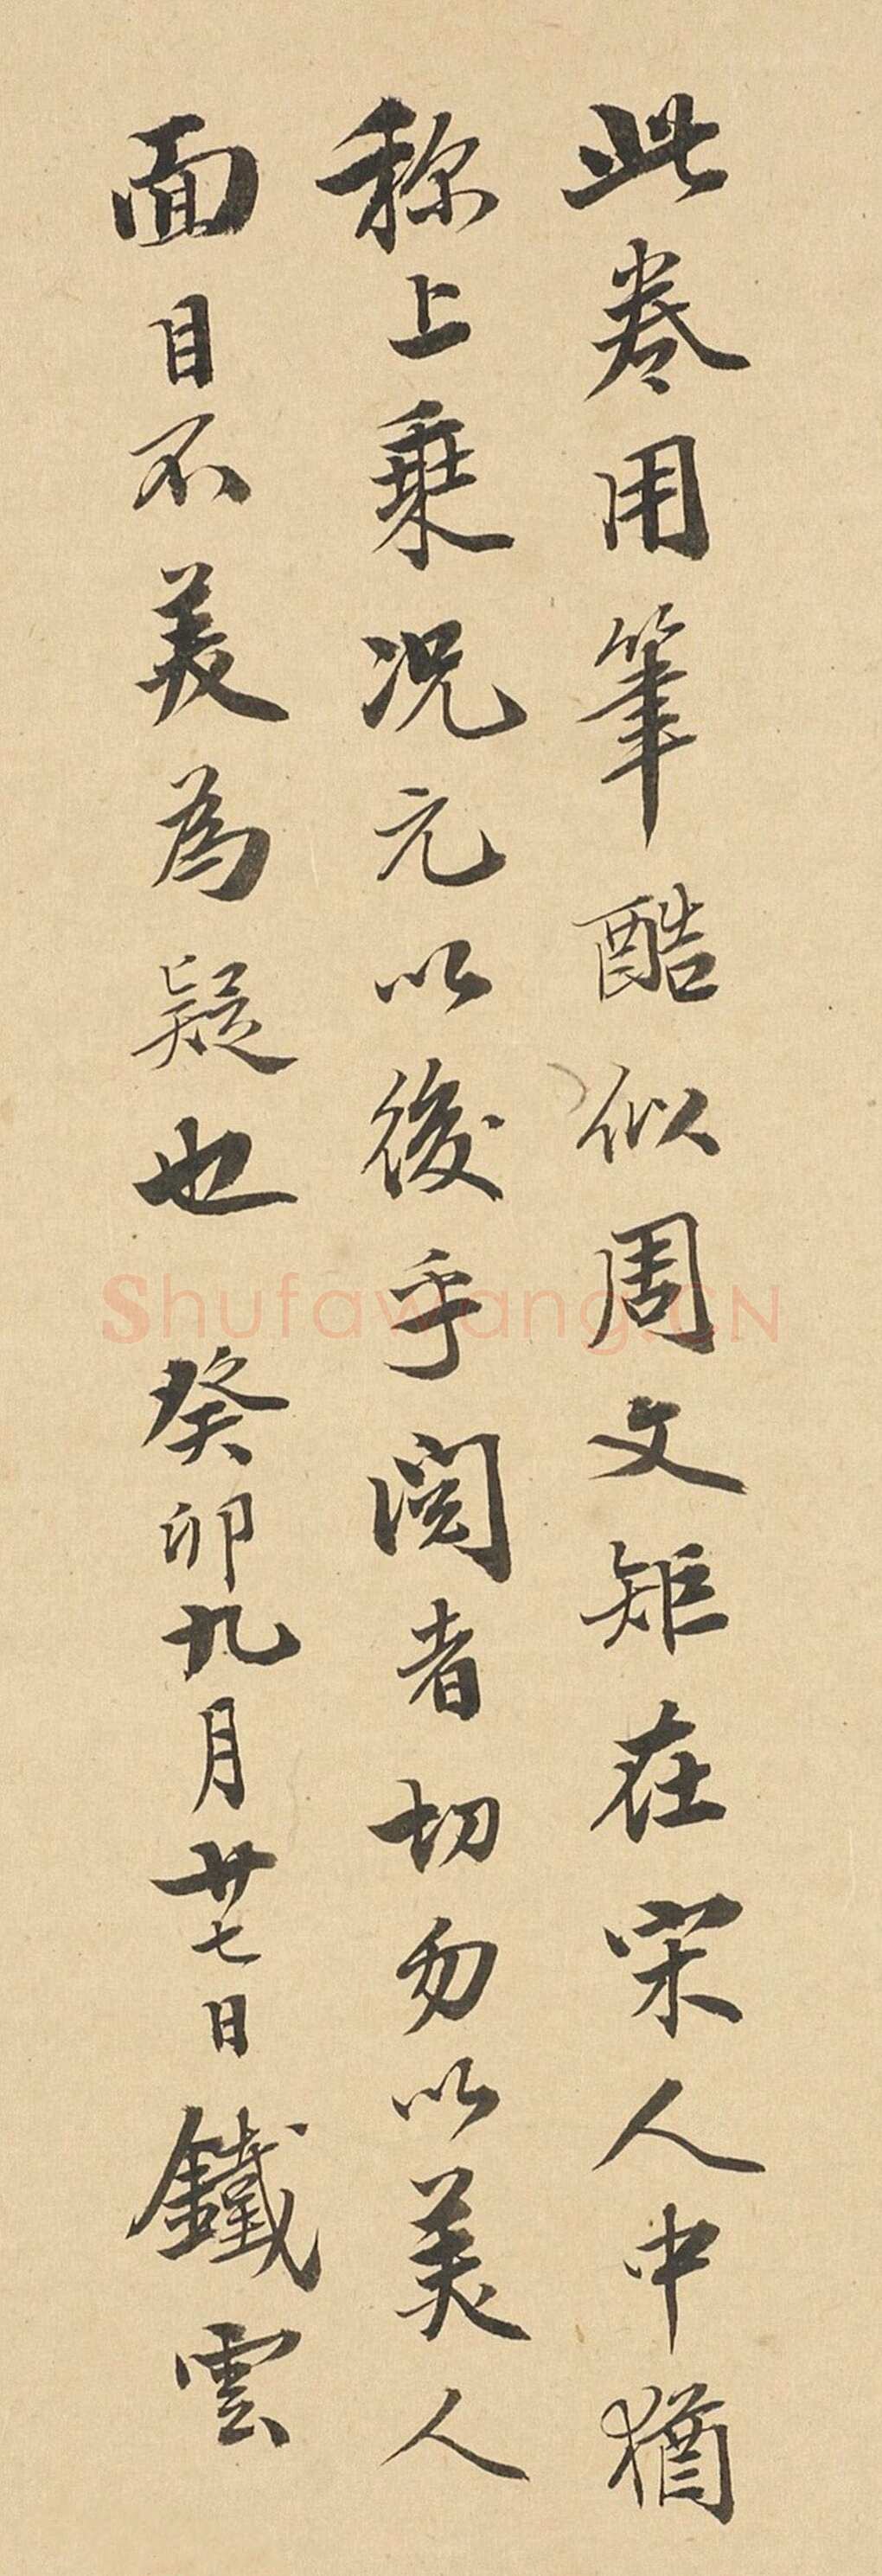 此卷用筆酷似周文矩在宋人中猶
称上乗况元以後乎閱者切勿以美人
面目不美為疑也 癸卯九月廿七日 鐵雲
Shufawang.CN